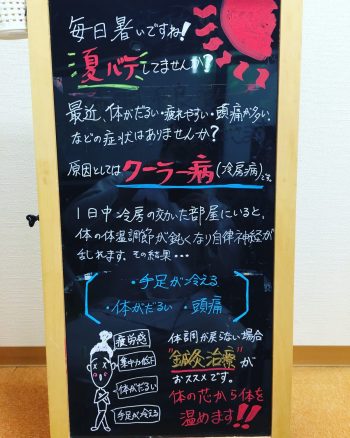 毎日暑いですね!
夏バテしてませんか?
最近、体がだるい・疲れやすい・頭痛が多い、
などの症状はありませんか?
原因としてはクーラー病(冷房病)です。
1日中冷房の効いた部屋にいると、
体の体温調節が鈍くなり自律神経が
乱れます。その結果・・・
・手足が冷える
・体がだるい・頭痛
疲労感
集中力低下
体がだるい
手足が冷える
体調が戻らない場合
"鍼灸治療"が
おススメです。
体の芯から体を
温めます!!